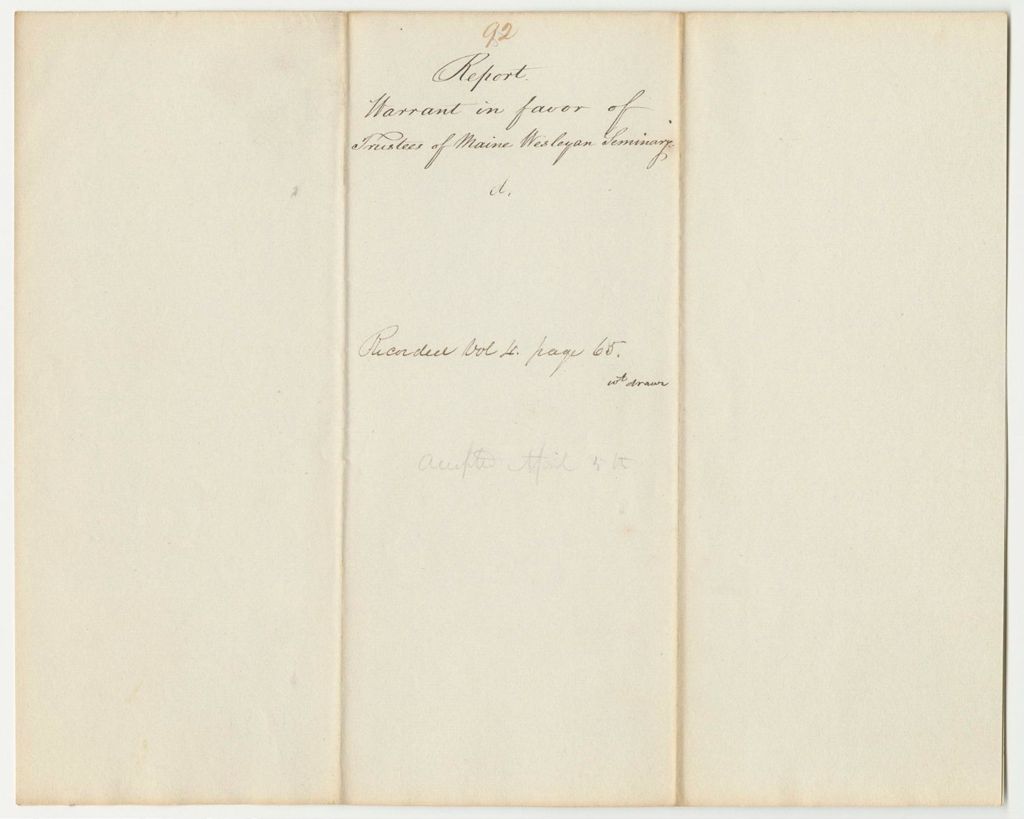 92
Report.
Warrant in favor of
Trustees of Maine Wesleyan Seminary.
d.
Recorded Vol 4. page 65.
wt drawn
Accepted April 5th